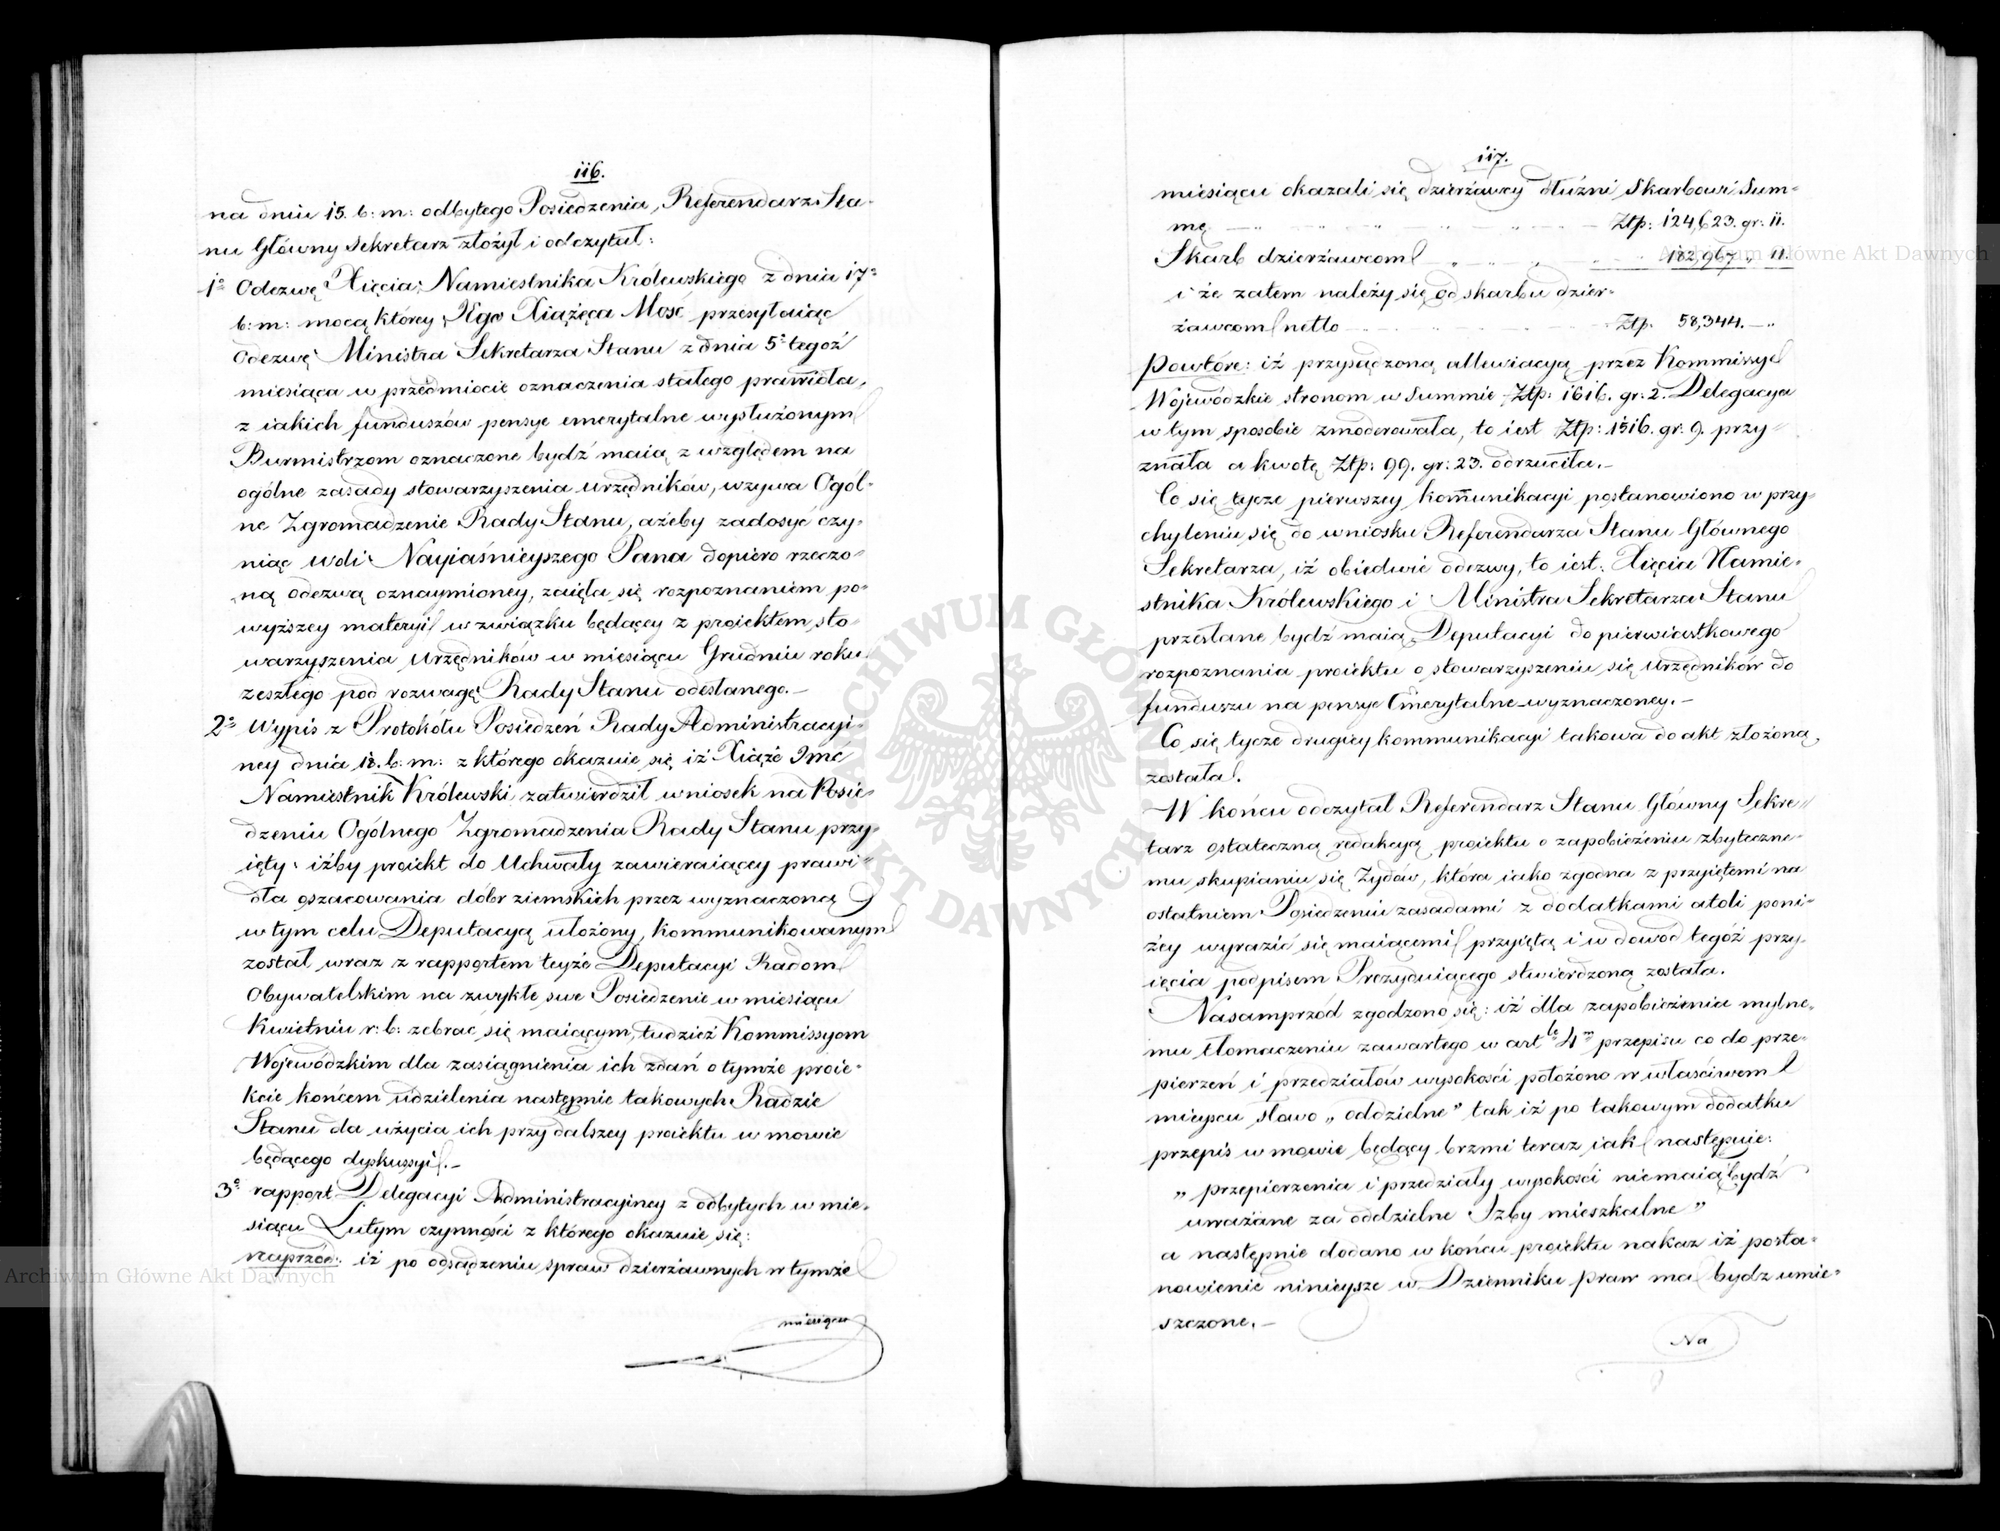 116.
na dniu 15. b: m: odbytego Posiedzenia, Referendarz Sta-
nu Główny Sekretarz złożył i odczytał:
1º Odezwę Xięcia Namiestnika Królewskiego z dnia 17º
b: m: mocą którey Jego Xiążęca Mość przesyłaiąc
Odezwę Ministra Sekretarza Stanu z dnia 5º tegoż
miesiąca w przedmiocie oznaczenia stałego prawidła,
z iakich funduszów pensye emerytalne wysłużonym
Burmistrzom oznaczone bydź maią z względem na
ogólne zasady stowarzyszenia urzędników, wzywa Ogól-
ne Zgromadzenie Rady Stanu, ażeby zadosyc czy-
niąc woli Nayiaśnieyszego Pana dopiero rzeczo-
ną odezwą oznaymioney, zaięła się rozpoznaniem po-
wyższey materyi w związku będącey z proiektem sto-
warzyszenia Urzędników w miesiącu Grudniu roku
zeszłego pod rozwagę Rady Stanu odesłanego.-
2º Wypis z Protokółu Posiedzeń Rady Administracyi-
ney dnia 18. b: m: z którego okazuie się iż Xiąże Jmć
Namiestnik Królewski zatwierdził wniosek na Posie-
dzeniu Ogólnego Zgromadzenia Rady Stanu przy-
ięty: iżby proiekt do Uchwały zawieraiącey prawi-
dła oszacowania dóbr ziemskich przez wyznaczoną
w tym celu Deputacyą ułożony, kommunikowanym
został wraz z rapportem teyże Deputacyi Radom
Obywatelskim na zwykłe swe Posiedzenie w miesiącu
Kwietniu r: b: zebrac się maiącym, tudzież Kommissyom
Wojewódzkim dla zasiągnienia ich zdań o tymże proie-
kcie końcem udzielenia następnie takowych Radzie
Stanu da użycia ich przy dalszey proiektu w mowie
będącego dyskussyi.-
3º rapport Delegacyi Administracyiney z odbytych w mie-
siącu Lutym czynności z którego okazuie się:
naprzód: iż po odsądzeniu spraw dzierżawnych w tymże
miesiącu
117.
miesiącu okazali się dzierżawcy dłużni Skarbowi Sum-
mę Złp: 124,623. gr: 11.
Skarb dzierżawcom 182,967 „ 11.
i że zatem należy się od skarbu dzier-
żawcom netto Złp. 58,344. — „
Powtóre: iż przysądzoną allewiacyą przez Kommissye
Wojewódzkie stronom w Summie Złp: 1616. gr: 2. Delegacya
w tym sposobie zmoderowała, to iest Złp: 1516. gr: 9. przy-
znała a kwotę Złp: 99. gr: 23. odrzuciła.-
Co się tycze pierwszey kom̄unikacyi postanowiono w przy-
chyleniu się do wniosku Referendarza Stanu Głównego
Sekretarza, iż obiedwie odezwy, to iest: Xięcia Namie-
stnika Królewskiego i Ministra Sekretarza Stanu
przesłane bydź maią Deputacyi do pierwiastkowego
rozpoznania proiektu o stowarzyszeniu się Urzędników do
funduszu na pensye Emerytalne wyznaczoney.-
Co się tycze drugiey kommunikacyi takowa do akt złożoną
została.
W końcu odczytał Referendarz Stanu Główny Sekre-
tarz ostateczną redakcyą proiektu o zapobieżeniu zbyteczne-
mu skupianiu się Żydów, która iako zgodna z przyiętemi na
ostatniem Posiedzeniu zasadami z dodatkami atoli poni-
żey wyrazić się maiącemi przyiętą i w dowód tegóż przy-
ięcia podpisem Prezyduiącego stwierdzoną została.
Nasamprzód zgodzono się: iż dla zapobieżenia mylne-
mu tłomaczeniu zawartego w artle 4m przepisu co do prze-
pierzeń i przedziałów wysokości położono w właściwem
mieyscu słowo „oddzielne" tak iż po takowym dodatku
przepis w mowie będący brzmi teraz iak następuie:
„przepierzenia i przedziały wysokości niemaią bydź
uważane za oddzielne Izby mieszkalne"
a następnie dodano w końcu proiektu nakaz iż posta-
nowienie ninieysze w Dzienniku praw ma bydz umie-
szczone.-
Na
Archiwum Główne Akt Dawnych
Archiwum Główne Akt Dawnych
ARCHIWUM GŁÓWNE AKT DAWNYCH